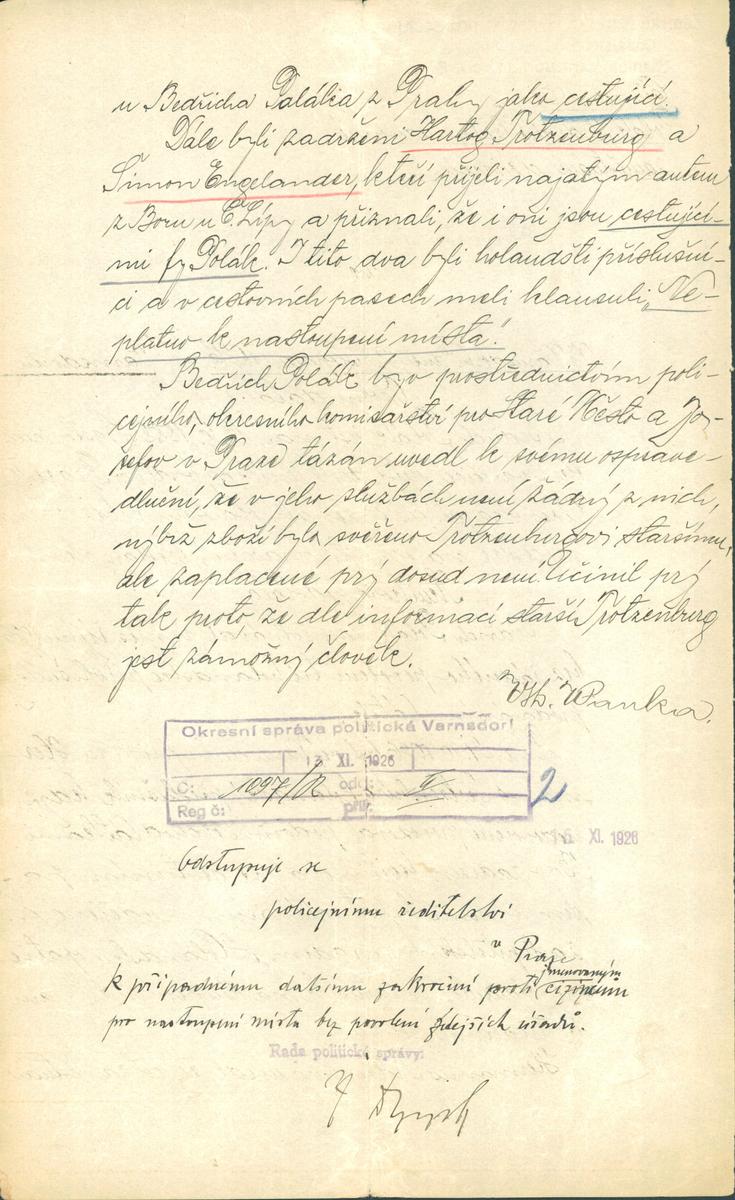 u Bedřicha Poláka z Prahy jako cestující.
Dále byli zadrženi Hartog Trotzenburg a
Šimon Engelander, kteří přijeli najatým autem
z Boru u Č. Lípy a přiznali, že i oni jsou cestující-
mi fy Polák. I tito dva byli holandští příslušní-
ci a v cestovních pasech měli klausuli „Ne-
platno k nastoupení místa."
Bedřich Polák byv prostřednictvím poli-
cejního, okresního komisařství pro Staré Město a Jo-
sefov v Praze tázán uvedl k svému osprave-
dlnění, že v jeho službách není žádný z nich,
nýbrž zboží bylo svěřeno Trotzenburgovi staršímu,
ale zaplacené prý dosud není. Učinil prý
tak proto že dle informací starší Trotzenburg
jest zámožný člověk.
Okresní správa politická Varnsdorf
13 XI. 1926
Č: 1097/R odd: V
Reg č: příl:
2
XI. 1926
Odstupuje se
policejnímu ředitelství
v Praze
k případnému dalšímu zakročení proti jmenovaným cizincům
pro nastoupení místa bez povolení zdejších úřadů.
Rada politické správy: